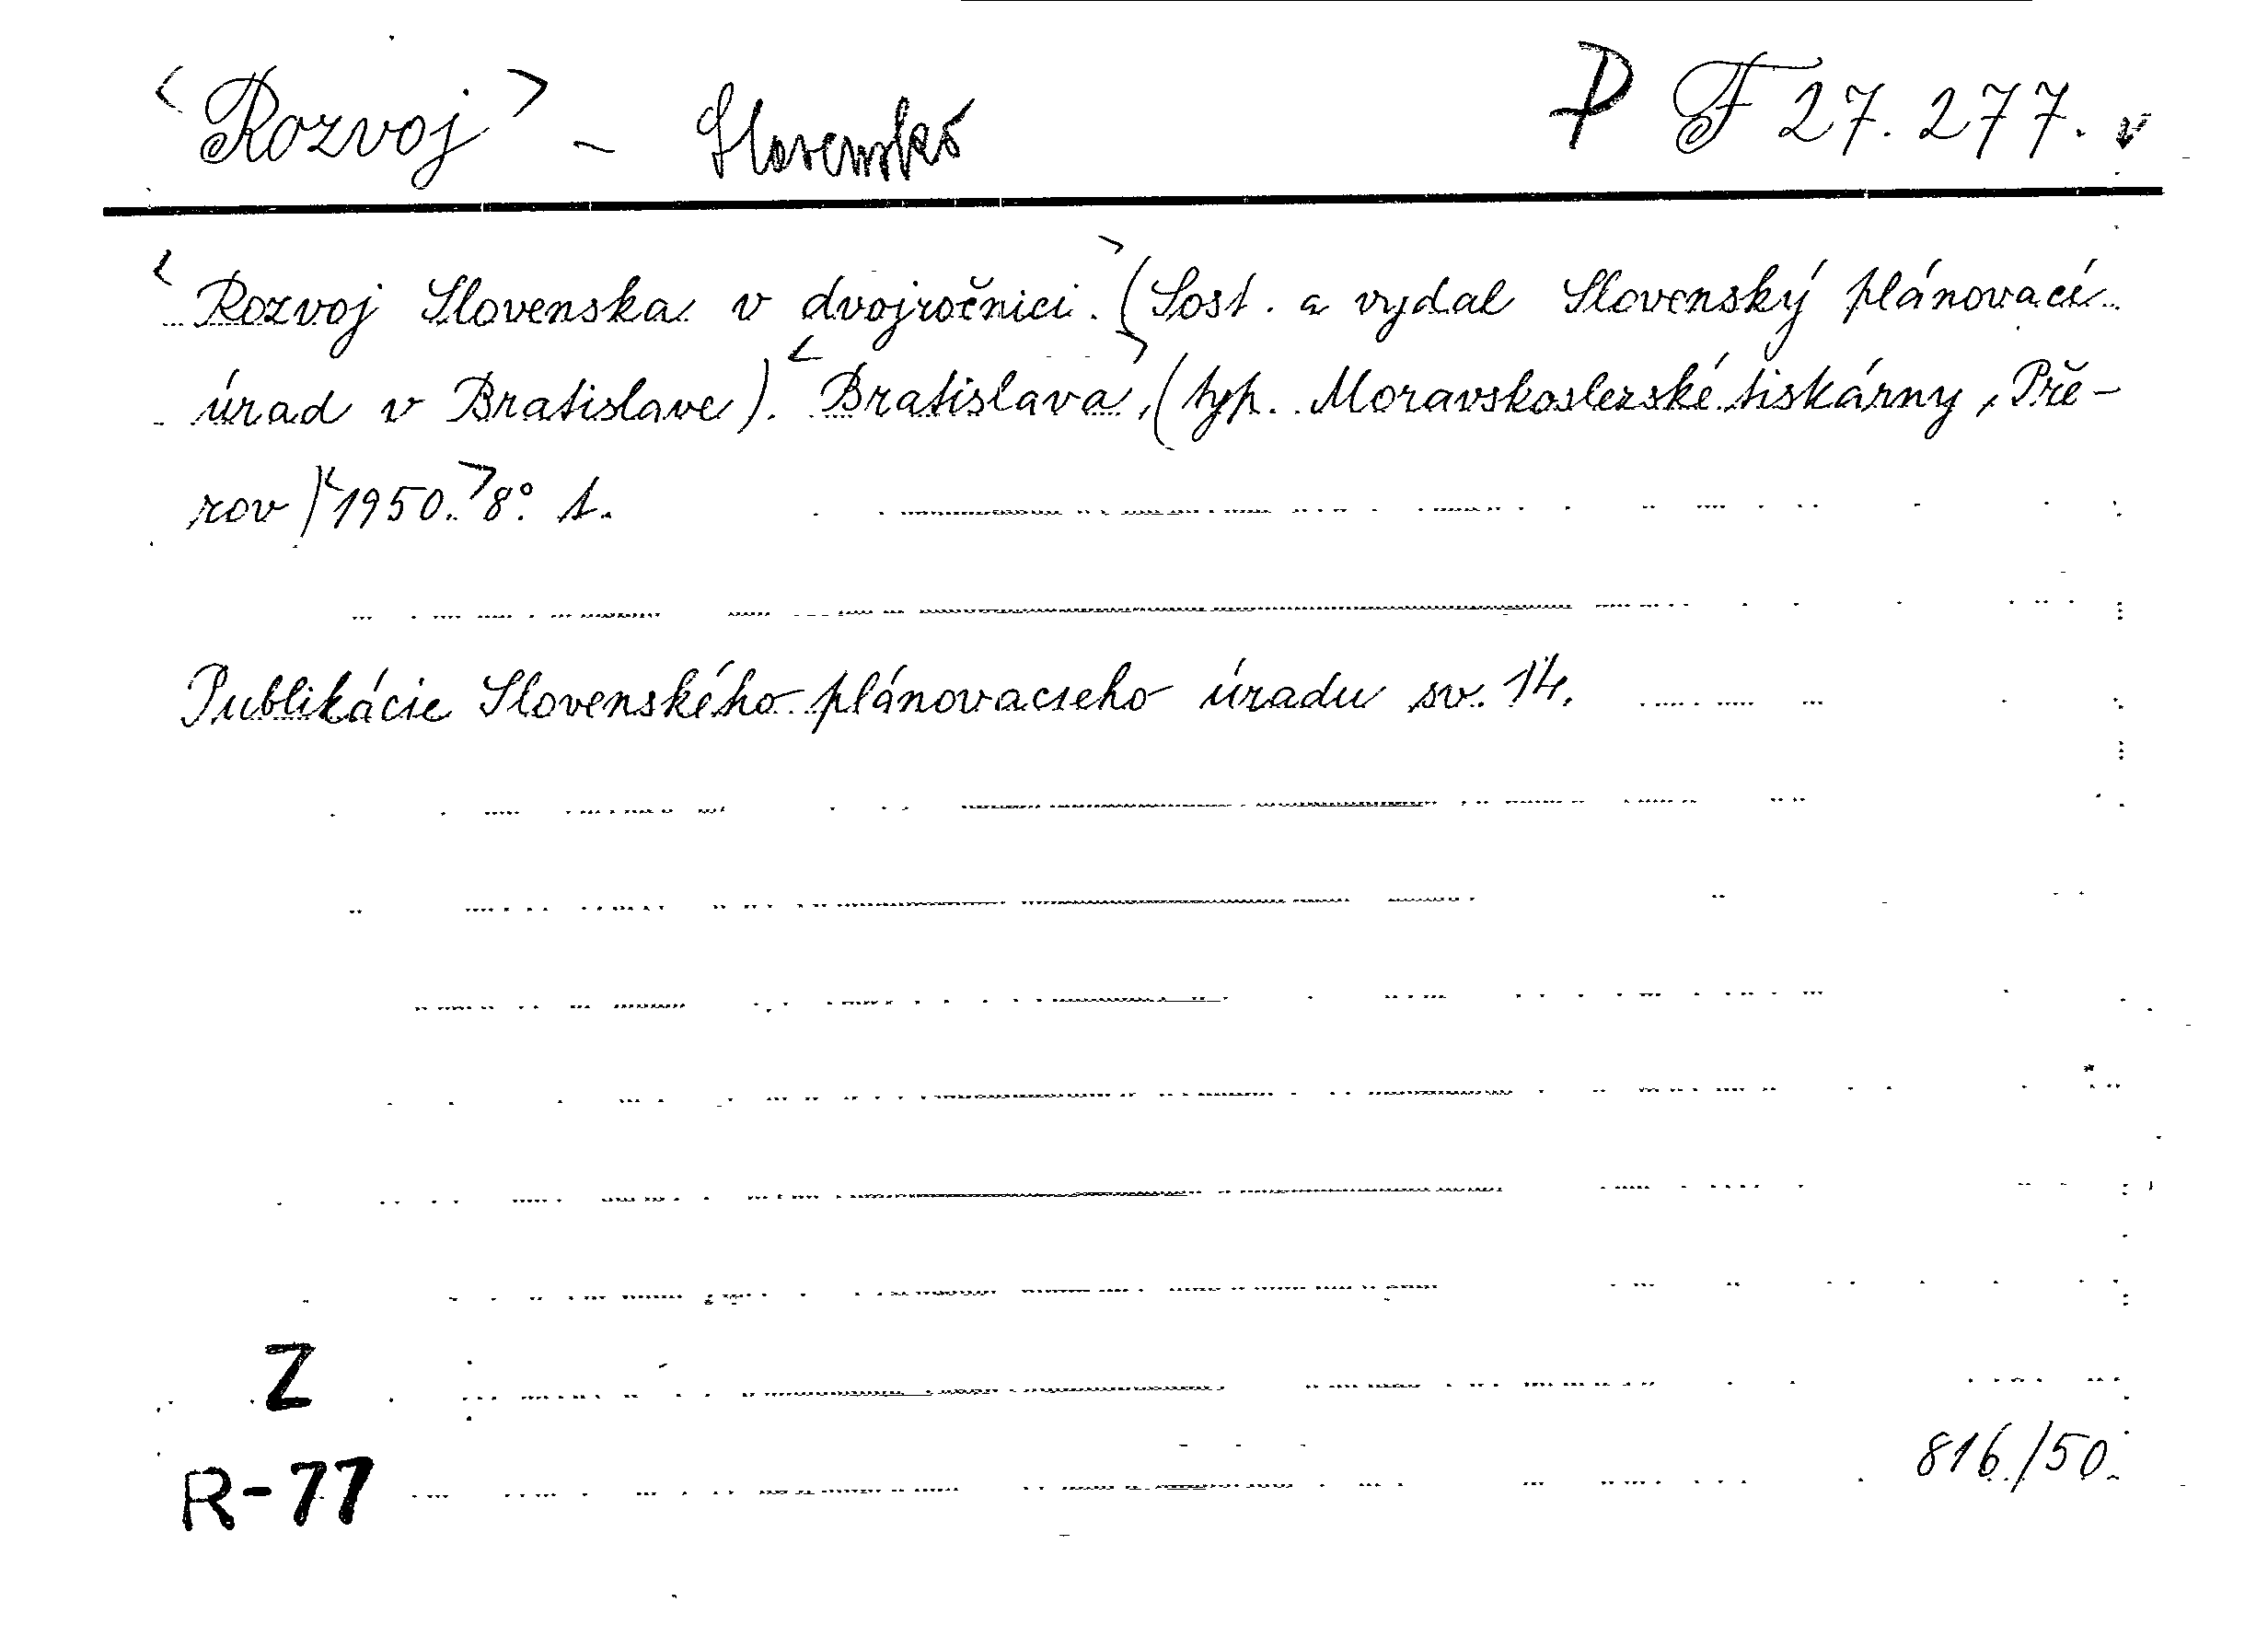 <Rozvoj> - Slovensko P F 27.277. v
<Rozvoj Slovenska v dvojročnici.> (Sost. a vydal Slovenský plánovací
úrad v Bratislave). <Bratislava>, (typ. Moravskoslezské tiskárny, Pře-
rov) <1950.> 8°. 1.
Publikácie Slovenského plánovacieho úradu sv. 14.
Z
R-77 816/50.